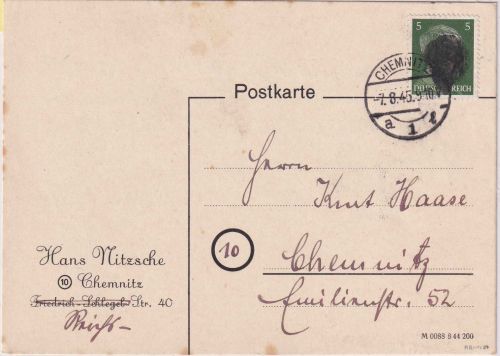 5 5
DEUTSCHES REICH
CHEMNITZ
-7.8.45.9-10V
a 1 t
Postkarte
Herrn
Kurt Haase
10
Chemnitz
Emilienstr. 52
Hans Nitzsche
10 Chemnitz
Friedrich-Schlegel-Str. 40
Reichs-
M 0088 8 44 200